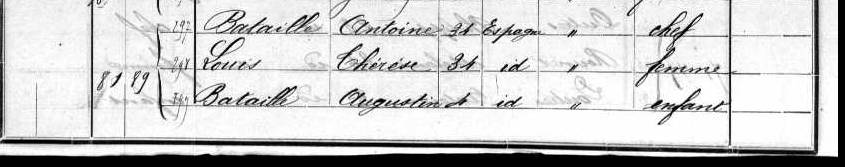 297 Bataille Antoine 34 Espagne " chef
298 Louis Thérèse 34 id " femme
81 89 Bataille Augustin 4 id " enfant